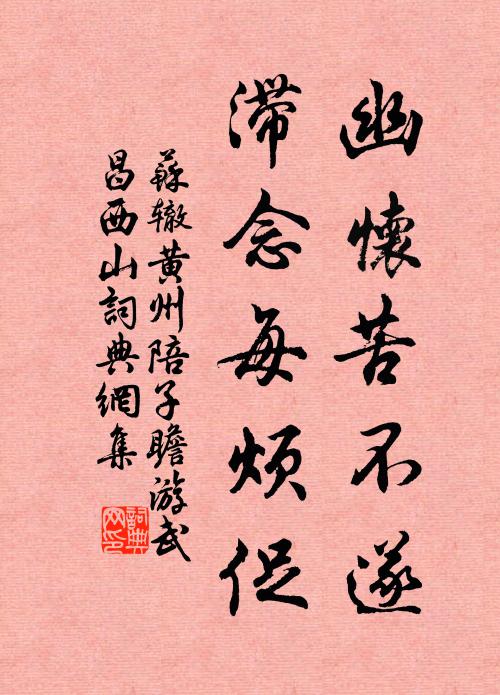 幽懷苦不遂
滯念每煩促
蘇辙黄州陪子瞻游武
昌西山詞典網集
詞典
网印